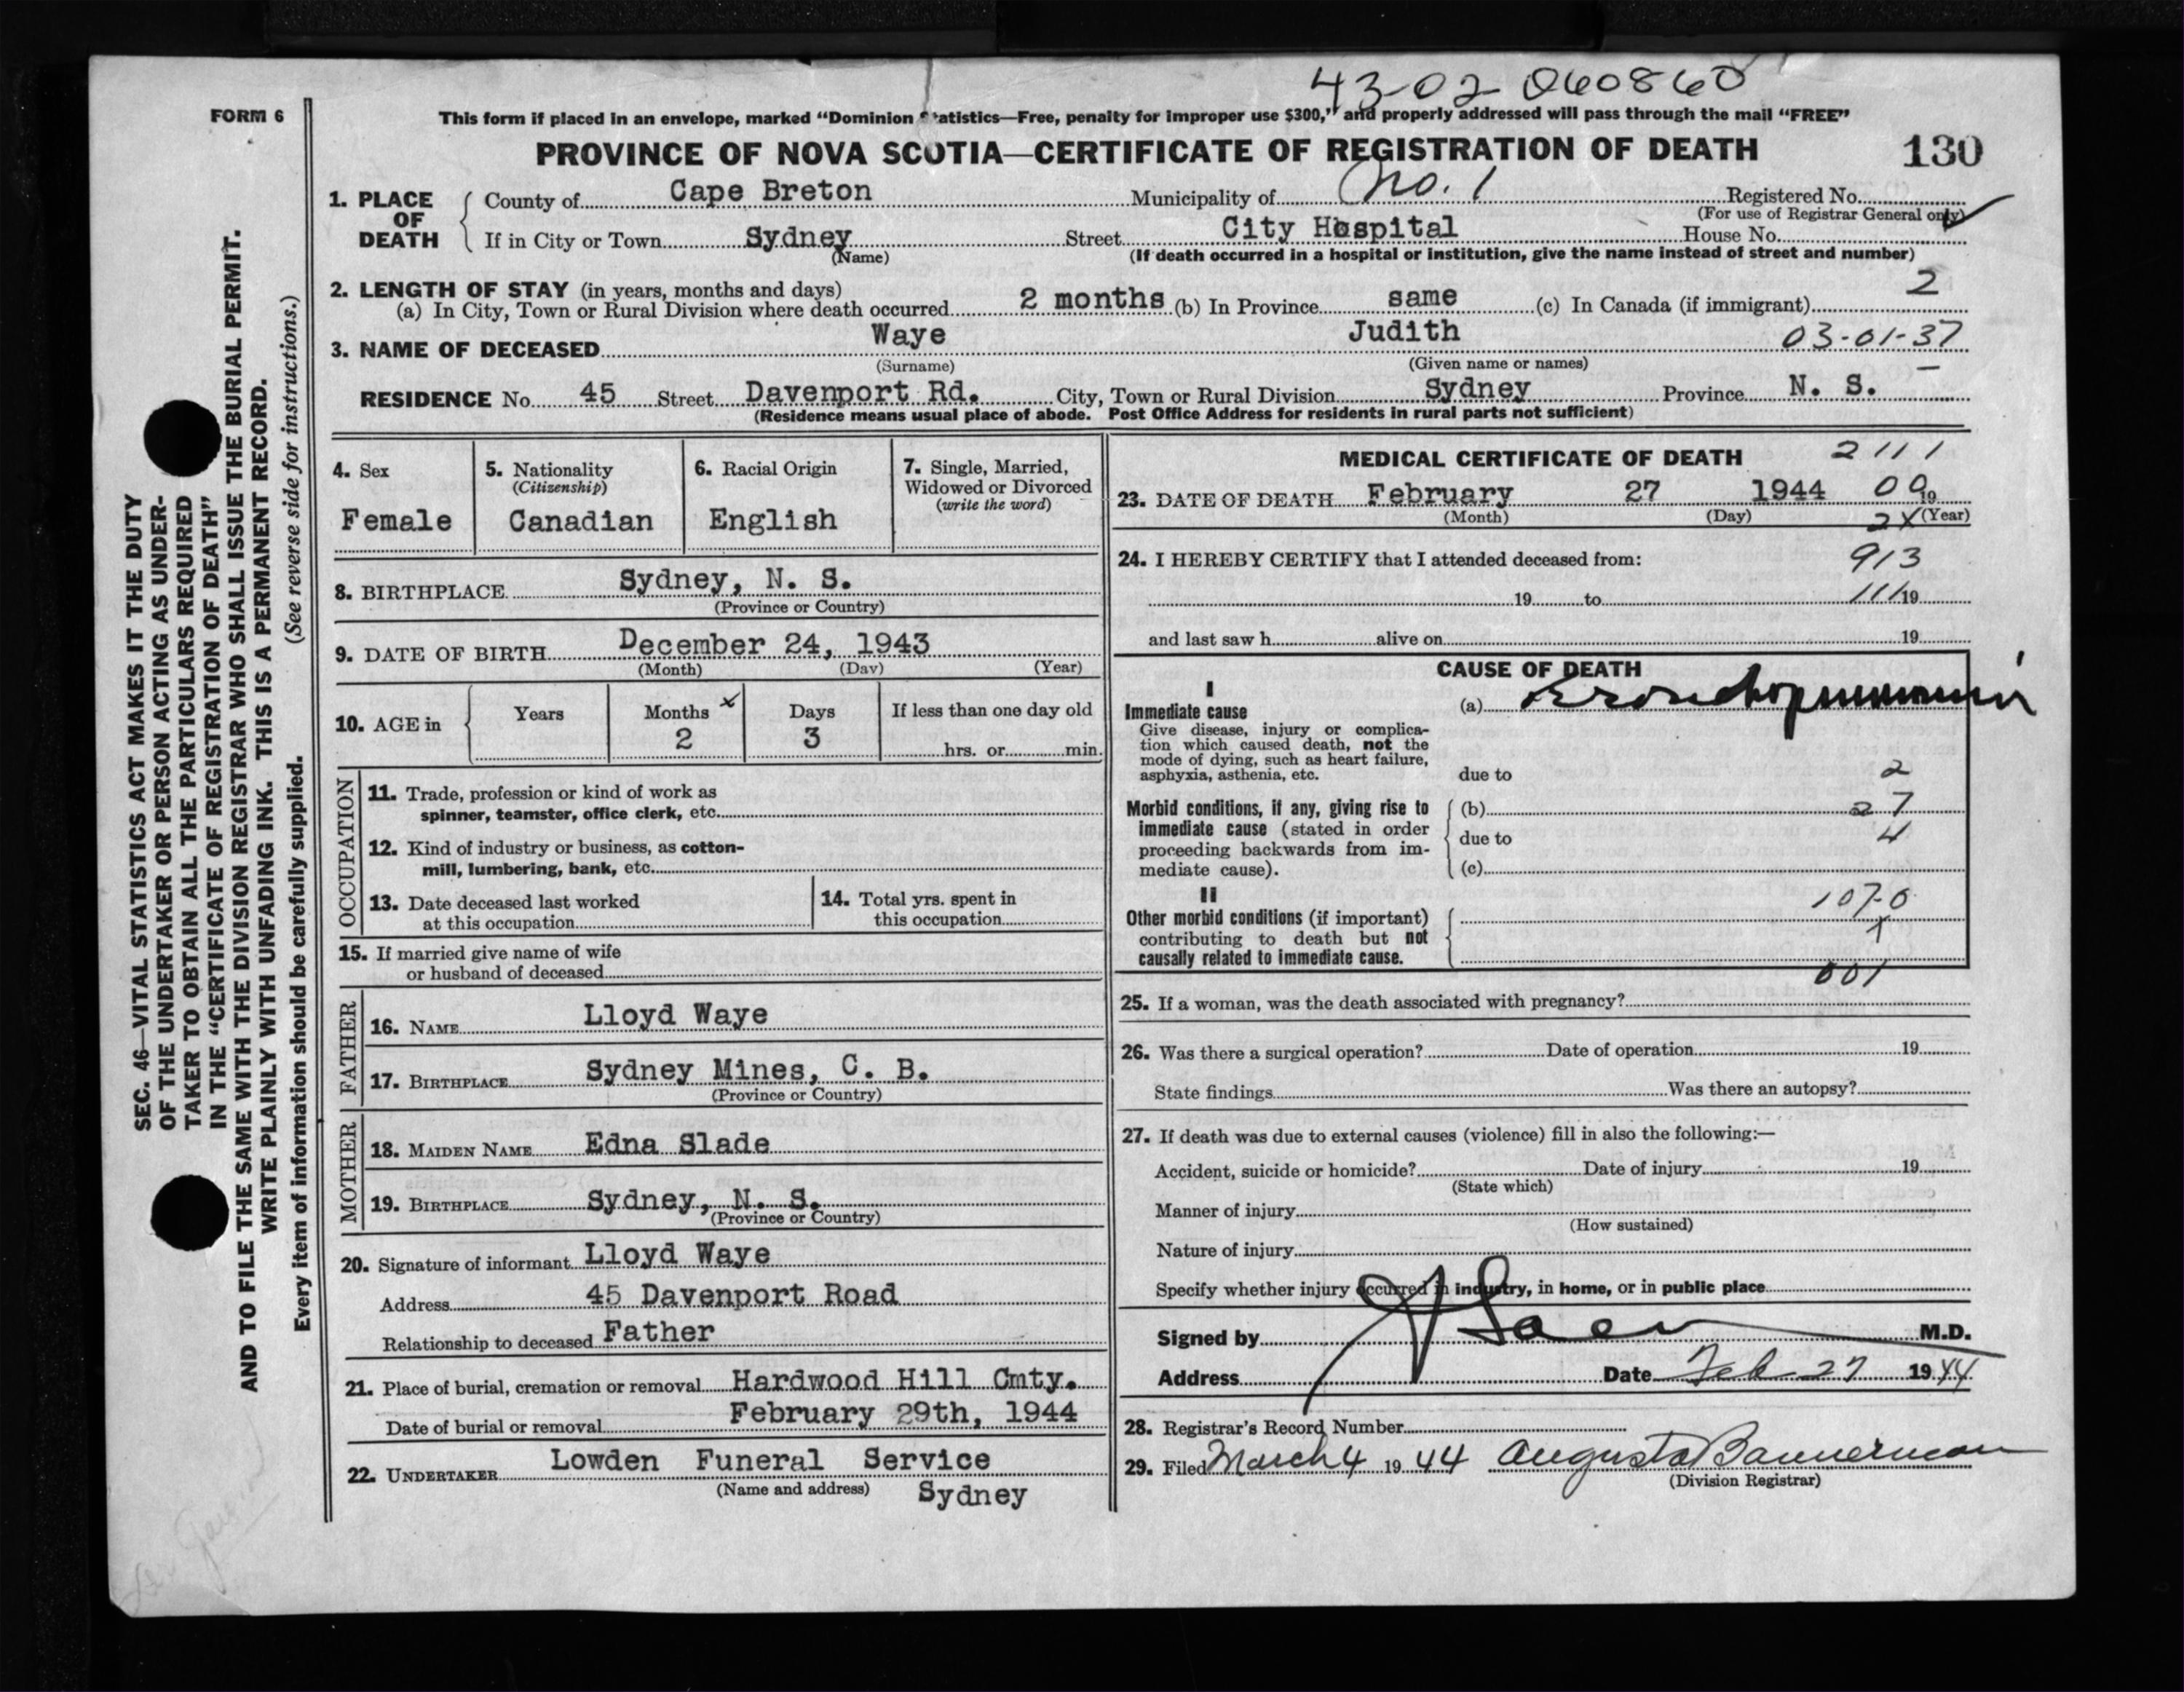 43-02 060860
FORM 6
This form if placed in an envelope, marked “Dominion Statistics—Free, penalty for improper use $300,” and properly addressed will pass through the mail “FREE”
PROVINCE OF NOVA SCOTIA—CERTIFICATE OF REGISTRATION OF DEATH 130
1. PLACE OF DEATH
County of Cape Breton Municipality of No. 1 Registered No.
(For use of Registrar General only)
If in City or Town Sydney Street City Hospital House No.
(Name) (If death occurred in a hospital or institution, give the name instead of street and number)
2. LENGTH OF STAY (in years, months and days) 2
(a) In City, Town or Rural Division where death occurred 2 months (b) In Province same (c) In Canada (if immigrant)
3. NAME OF DECEASED Waye Judith 03-01-37
(Surname) (Given name or names)
RESIDENCE No. 45 Street Davenport Rd. City, Town or Rural Division Sydney Province N. S.
(Residence means usual place of abode. Post Office Address for residents in rural parts not sufficient)
4. Sex
Female
5. Nationality
(Citizenship)
Canadian
6. Racial Origin
English
7. Single, Married,
Widowed or Divorced
(write the word)
8. BIRTHPLACE Sydney, N. S.
(Province or Country)
9. DATE OF BIRTH December 24, 1943
(Month) (Day) (Year)
10. AGE in Years Months x Days If less than one day old
2 3 hrs. or min.
OCCUPATION
11. Trade, profession or kind of work as
spinner, teamster, office clerk, etc.
12. Kind of industry or business, as cotton-
mill, lumbering, bank, etc.
13. Date deceased last worked
at this occupation
14. Total yrs. spent in
this occupation
15. If married give name of wife
or husband of deceased
FATHER
16. NAME Lloyd Waye
17. BIRTHPLACE Sydney Mines, C. B.
(Province or Country)
MOTHER
18. MAIDEN NAME Edna Slade
19. BIRTHPLACE Sydney, N. S.
(Province or Country)
20. Signature of informant Lloyd Waye
Address 45 Davenport Road
Relationship to deceased Father
21. Place of burial, cremation or removal Hardwood Hill Cmty.
Date of burial or removal February 29th, 1944
22. UNDERTAKER Lowden Funeral Service
(Name and address) Sydney
MEDICAL CERTIFICATE OF DEATH 2111
23. DATE OF DEATH February 27 1944 00 19
(Month) (Day) 2X (Year)
24. I HEREBY CERTIFY that I attended deceased from: 913
19 to 111 19
and last saw h alive on 19
CAUSE OF DEATH
I
Immediate cause (a) Bronchopneumonia
Give disease, injury or complica-
tion which caused death, not the
mode of dying, such as heart failure,
asphyxia, asthenia, etc. due to 2
Morbid conditions, if any, giving rise to (b) 27
immediate cause (stated in order due to 4
proceeding backwards from im-
mediate cause). (c)
II 107-0
Other morbid conditions (if important)
contributing to death but not
causally related to immediate cause.
001
25. If a woman, was the death associated with pregnancy?
26. Was there a surgical operation? Date of operation 19
State findings Was there an autopsy?
27. If death was due to external causes (violence) fill in also the following:—
Accident, suicide or homicide? Date of injury 19
(State which)
Manner of injury
(How sustained)
Nature of injury
Specify whether injury occurred in industry, in home, or in public place
Signed by M.D.
Address Date Feb 27 1944
28. Registrar's Record Number
29. Filed March 4 1944 Augusta Bannerman
(Division Registrar)
SEC. 46—VITAL STATISTICS ACT MAKES IT THE DUTY
OF THE UNDERTAKER OR PERSON ACTING AS UNDER-
TAKER TO OBTAIN ALL THE PARTICULARS REQUIRED
IN THE “CERTIFICATE OF REGISTRATION OF DEATH”
AND TO FILE THE SAME WITH THE DIVISION REGISTRAR WHO SHALL ISSUE THE BURIAL PERMIT.
WRITE PLAINLY WITH UNFADING INK. THIS IS A PERMANENT RECORD.
Every item of information should be carefully supplied. (See reverse side for instructions.)